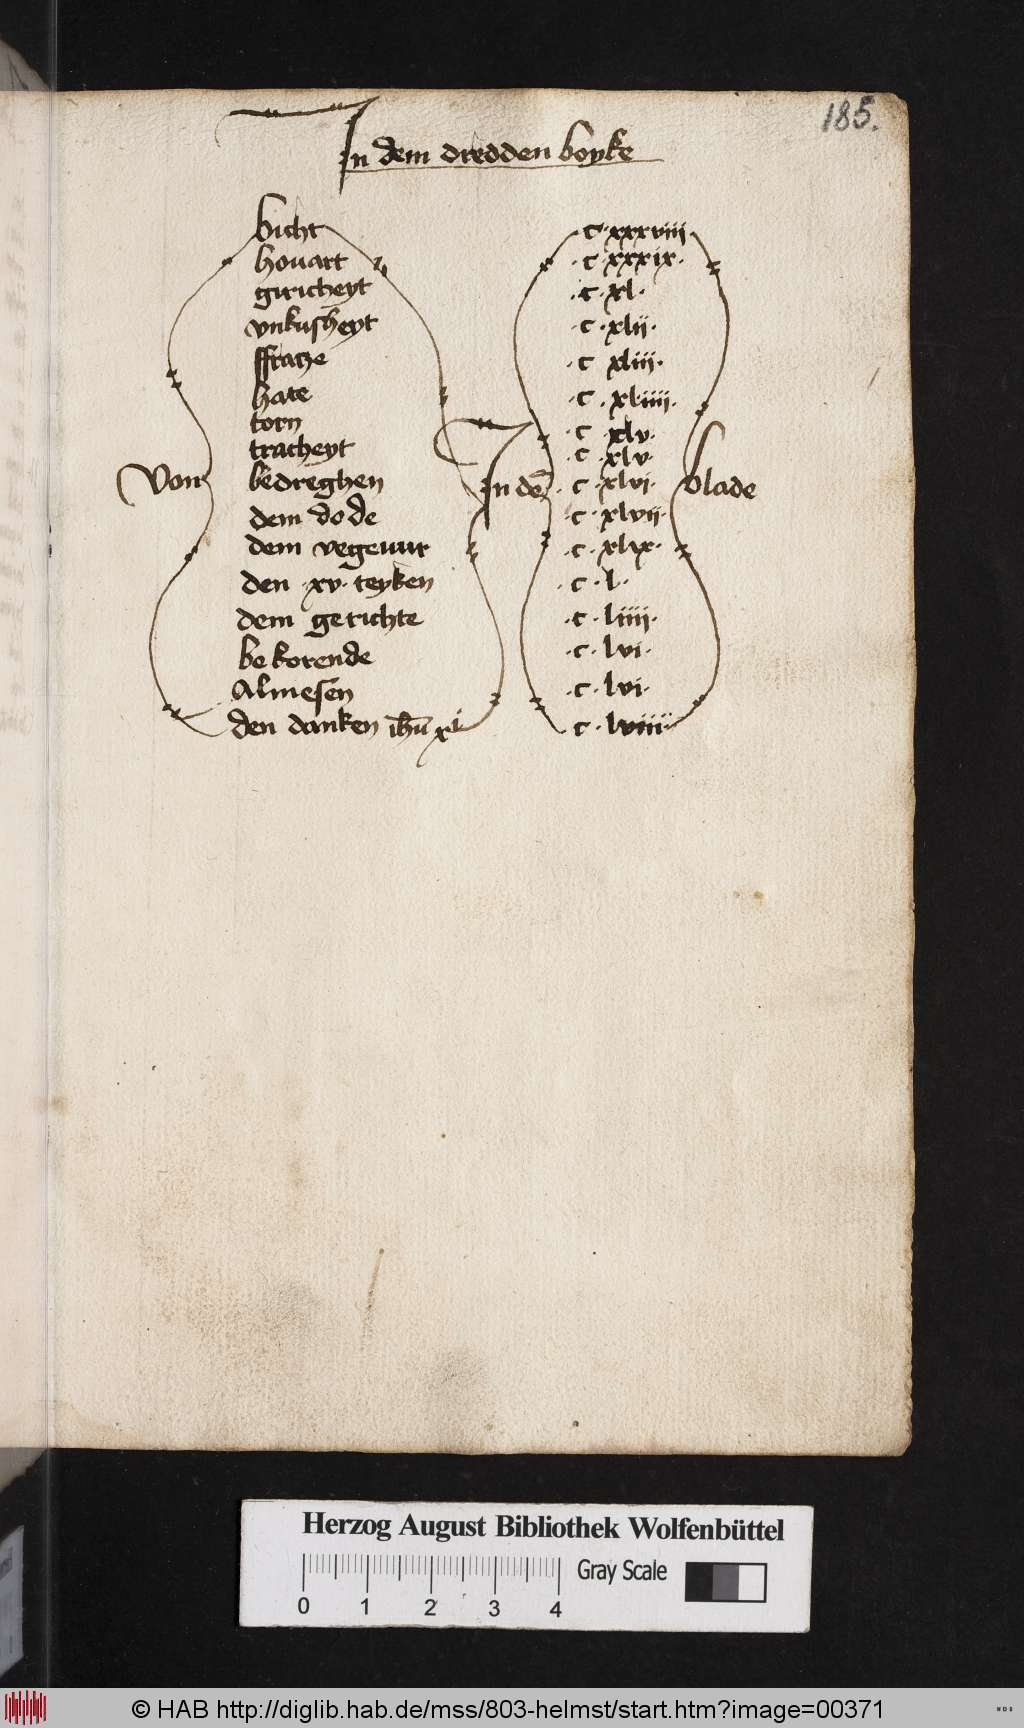 185.
In dem dredden boyke
bicht · c · xxxviii
houart · c xxxix ·
giricheyt · c · xl ·
vnkusheyt · c · xlii ·
ffratze · c xliii ·
hate · c · xliiii ·
torn · c xlv ·
tracheyt · c · xlv ·
Von bedreghen In dē · c · xlvi · blade
dem dode · c · xlvii ·
dem vegeuur · c · xlix ·
den · xv · teyken · c · l ·
dem gerichte · c · liiii ·
bekorende · c · lvi ·
Almesen · c · lvi ·
den danken ihū xi · c · lviiii ·
Herzog August Bibliothek Wolfenbüttel
Gray Scale
0 1 2 3 4
© HAB http://diglib.hab.de/mss/803-helmst/start.htm?image=00371